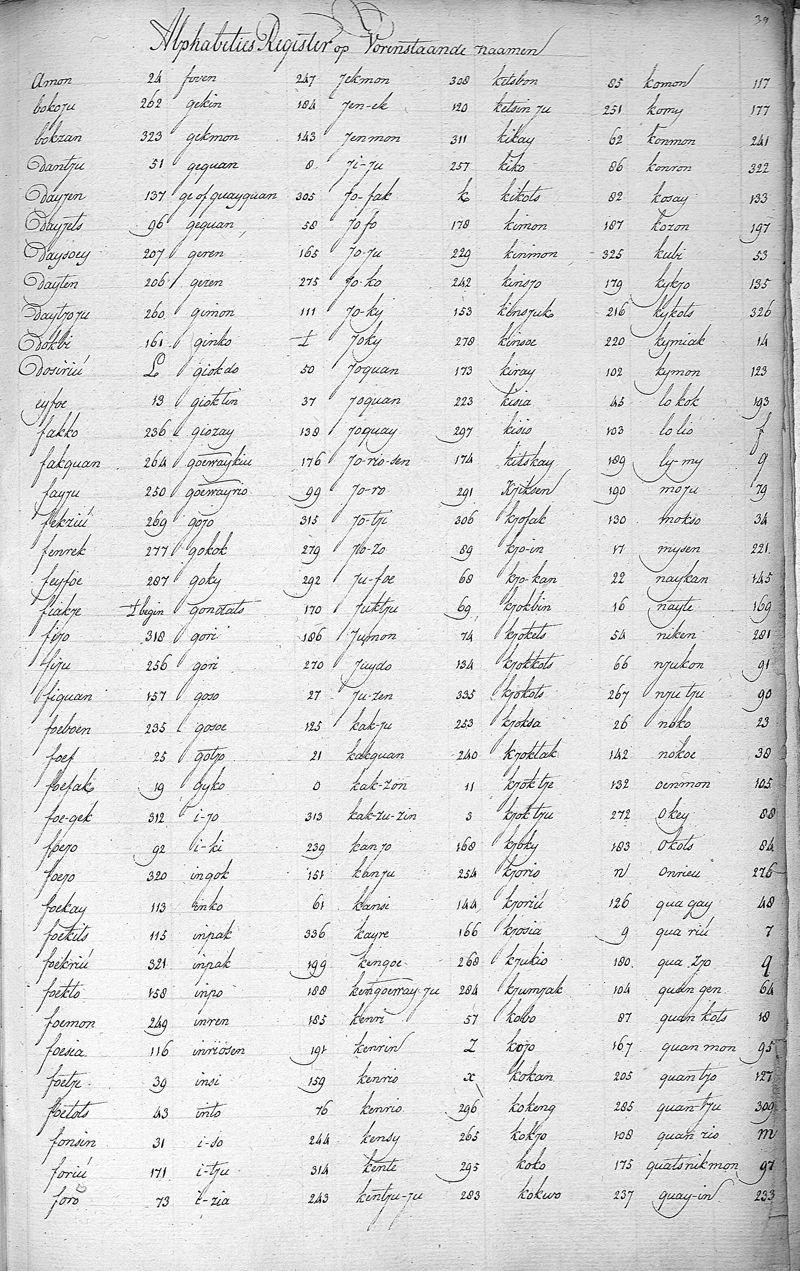 Alphabeties Register op Vorenstaande naamen
Amon 24 foven 247 Jekmon 308 ketsbon 85 komon 117
bokoju 262 gekin 184 Jen-ek 120 ketsin ju 251 komy 177
bokzan 323 gekmon 143 Jenmon 311 kikay 62 konmon 241
Dantju 51 gequan 8 Ji-ju 257 kiko 86 konron 322
Dayjen 137 ge of quayquan 305 Jo-fak k kikots 82 kosay 133
Dayjets 96 gequan 58 Jofo 178 kimon 187 kozon 197
Daysoey 207 geren 165 Jo-ju 229 kinmon 325 kubi 53
Dayten 206 gezen 275 Jo-ko 242 kinsjo 179 kykjo 135
Daytjoju 260 gimon 111 Jo-ky 153 kensjuk 216 kykots 326
Dokbi 161 ginko Joky 278 kinsoe 220 kymiak 14
Dosiriú L giokdo 50 Joquan 173 kiray 102 kymon 123
eyfoe 13 gioktin 37 Joquan 223 kisia 45 lokok 193
fakko 236 giozay 138 Joquay 297 kisio 103 lolio f
fakquan 264 goewaykiu 176 Jo-rio-sen 174 kitskay 189 ly-my q
fayju 250 goewayrio 99 Jo-ro 291 Kjiksen 190 moju 79
fekziú 269 gojo 315 Jo-tji 306 kjofak 130 mokso 34
fenrek 277 gokok 279 Jo-zo 89 kjo-in 17 mysen 221
feyfoe 287 goky 292 Ju-foe 68 kjo-kan 22 naykan 145
fiakje begin gonztats 170 Juktju 69 kjokbin 16 nayte 169
fijo 318 gori 186 Jumon 74 kjokets 54 niken 281
fiju 256 gori 270 Juydo 134 kjokkots 66 njukon 91
fiquan 157 goso 27 Ju-zen 335 kjokots 267 njutju 90
foeboen 235 gosoe 125 kak-ju 253 kjoksa 26 noko 23
foef 25 gotjo 21 kakquan 240 kjoktak 142 nokoe 38
foefak 19 gyko o kak-zon 11 kjoktje 132 oenmon 105
foe-gek 312 i-jo 313 kak-zu-zin 3 kjoktju 272 okey 88
foejo 92 i-ki 239 kanjo 168 kjoky 183 okots 84
foejo 320 ingok 151 kanju 254 kjorio n onrieu 276
foekay 113 inko 61 kansi 144 kjoriú 126 qua gay 48
foekits 115 inpak 336 kayre 166 kjosia 9 qua riú 7
foekriú 321 inpak 199 kengoe 268 kjukio 180 qua zjo q
foekto 158 inpo 188 kengoeway-ju 284 kjumjak 104 quangen 64
foemon 249 inren 185 kenri 57 kobo 87 quankots 18
foesia 116 inriosen 191 kenrin Z kojo 167 quanmon 95
foetje 39 insi 159 kenrio x kokan 205 quantjo 127
foetots 43 into 76 kenrio 296 kokeng 285 quan-tju 309
fonsin 31 i-so 244 kensy 265 kokjo 108 quanzio m
foriú 171 i-tju 314 kente 295 koko 175 quatsnikmon 97
foro 73 i-zia 243 kentju-ju 283 kokwo 237 quay-in 233